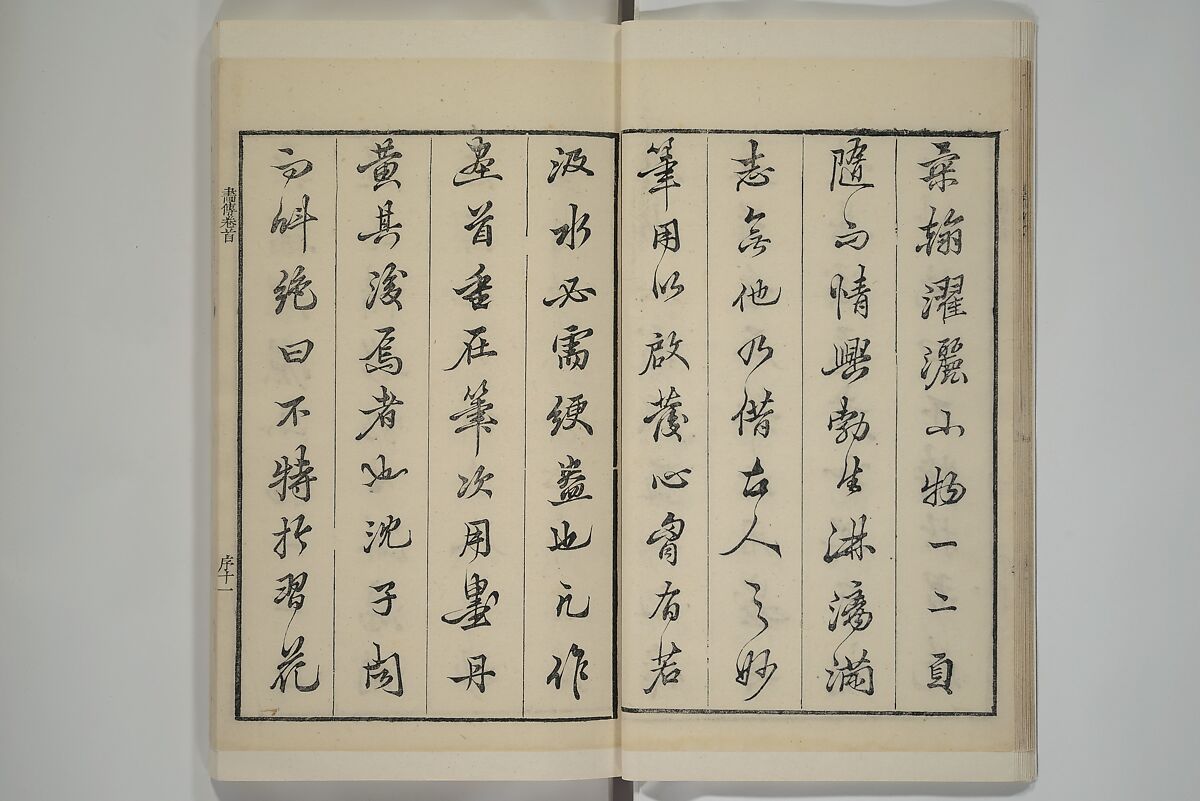 柔翰濯灑小物一二頁
隨而情興勃生淋漓滿
志無他乃借古人之妙
筆用以啟發心胷有若
汲水必需綆盎也凡作
畫首重在筆次用墨丹
黃其後焉者也沈子聞
而呌絕曰不特於習花
畫傳卷首
序十一